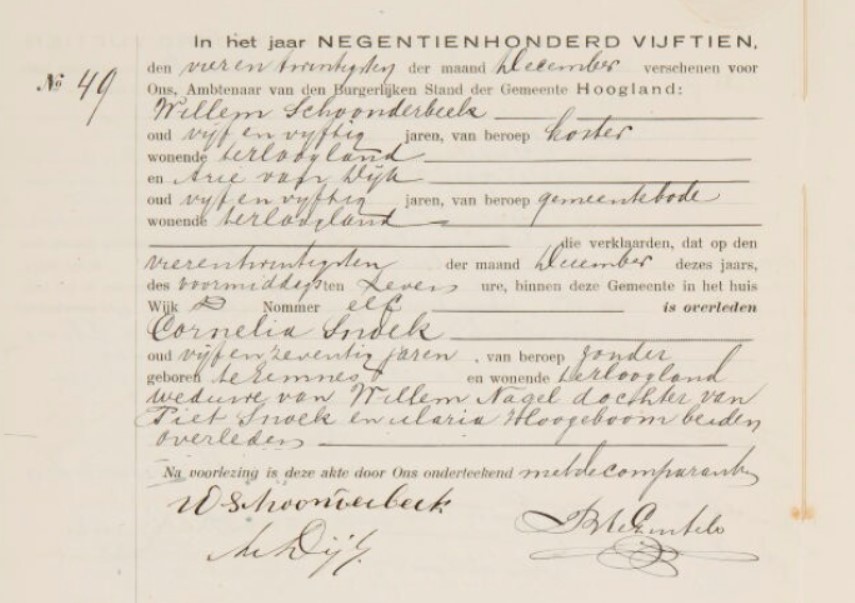 In het jaar NEGENTIENHONDERD VIJFTIEN,
den vierentwintigsten der maand December verschenen voor
No 49 Ons, Ambtenaar van den Burgerlijken Stand der Gemeente Hoogland:
Willem Schoonderbeek
oud vijf en vyftig jaren, van beroep koster
wonende terhoogland
en Arie van Dijk
oud vyf en vyftig jaren, van beroep gemeentebode
wonende terhoogland
die verklaarden, dat op den
vierentwintigsten der maand December dezes jaars,
des voormiddags ten zeven ure, binnen deze Gemeente in het huis
Wijk D Nommer elf is overleden
Cornelia Snoek
oud vijfenzeventig jaren, van beroep zonder
geboren te Eemnes en wonende terhoogland
weduwe van Willem Nagel dochter van
Piet Snoek en Maria Hoogeboom beiden
overleden
Na voorlezing is deze akte door Ons onderteekend met de comparanten
W Schoonderbeek
A v Dijk